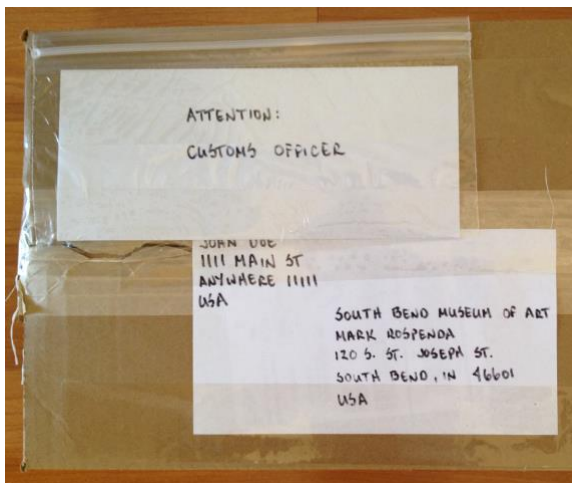 ATTENTION:
CUSTOMS OFFICER
JOHN DOE
1111 MAIN ST
ANYWHERE 11111
USA
SOUTH BEND MUSEUM OF ART
MARK ROSPENDA
120 S. ST. JOSEPH ST.
SOUTH BEND, IN 46601
USA